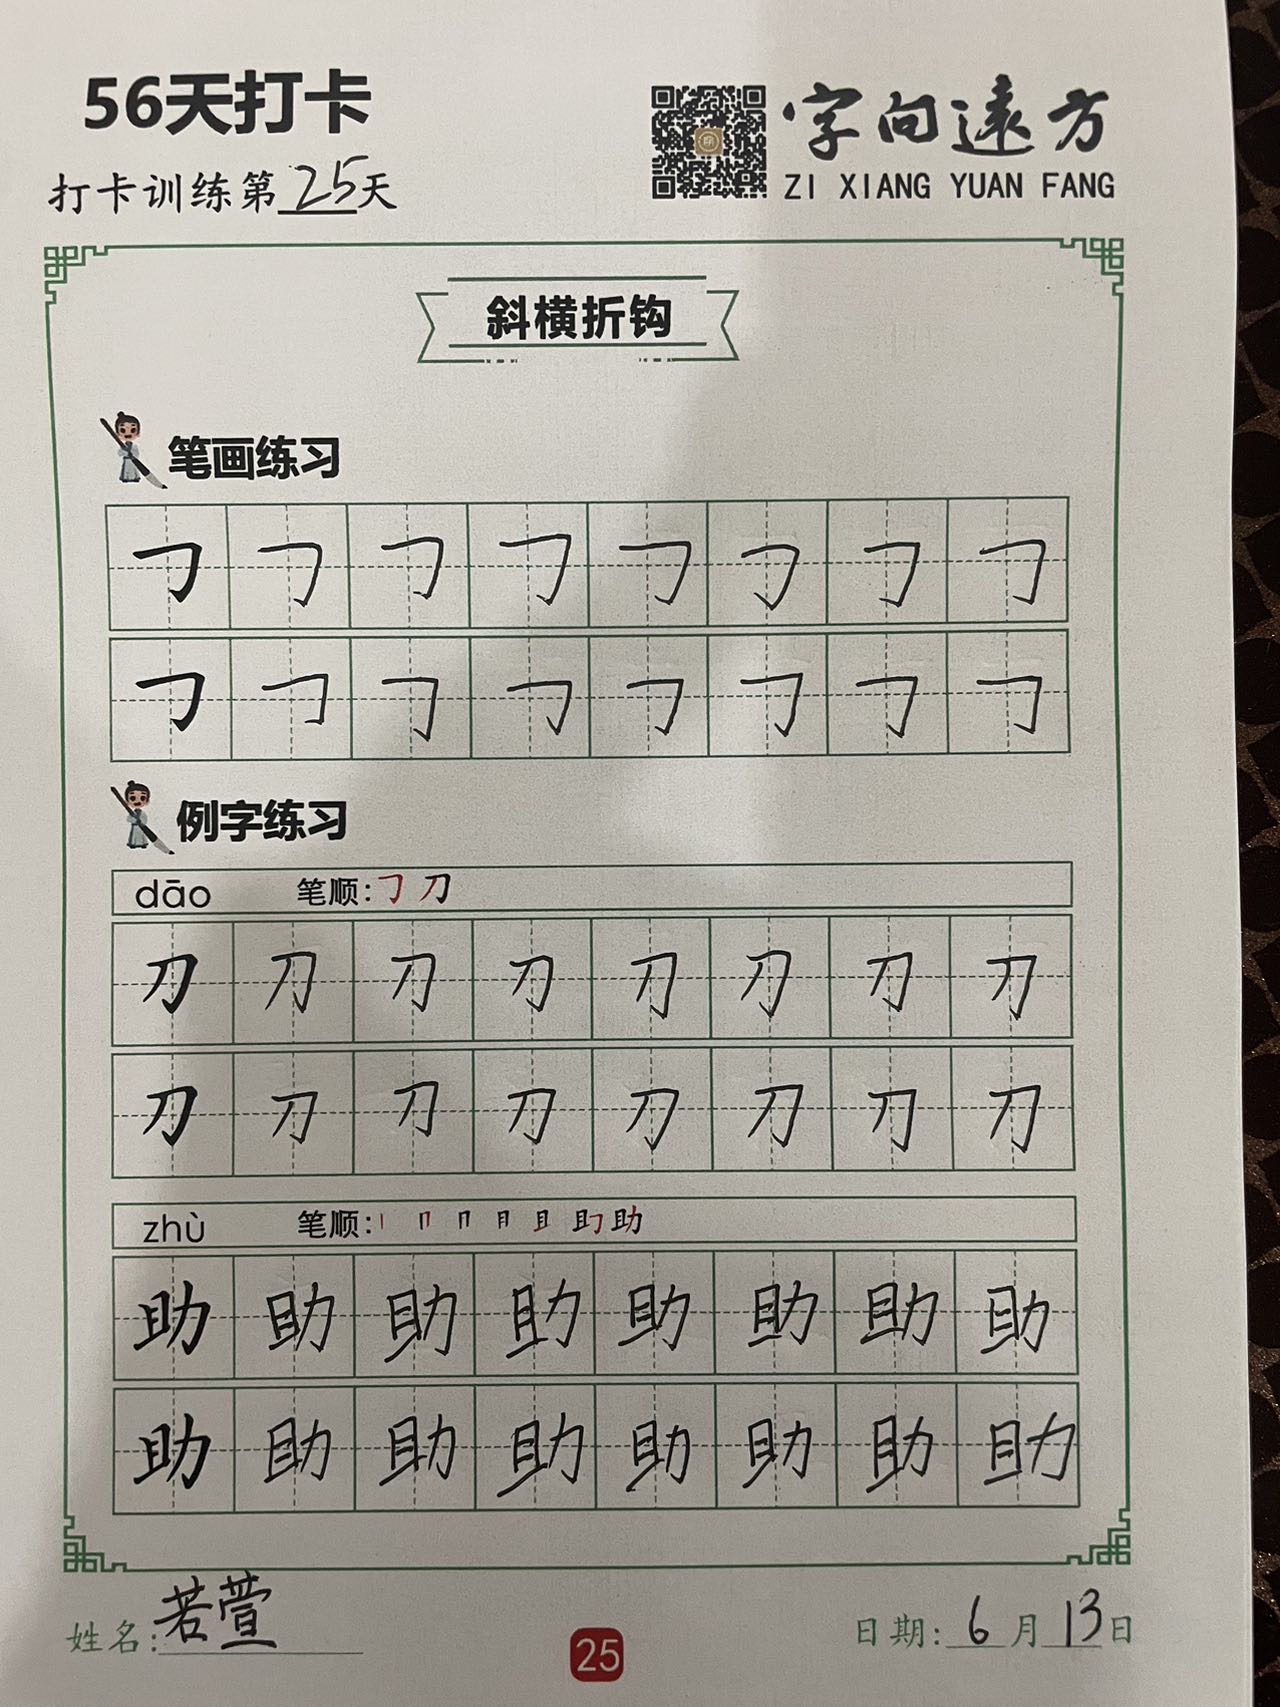 56天打卡
字向遠方
打卡训练第25天
ZI XIANG YUAN FANG
斜横折钩
笔画练习
㇆ ㇆ ㇆ ㇆ ㇆ ㇆ ㇆ ㇆
㇆ ㇆ ㇆ ㇆ ㇆ ㇆ ㇆ ㇆
例字练习
dāo 笔顺:㇆ 刀
刀 刀 刀 刀 刀 刀 刀 刀
刀 刀 刀 刀 刀 刀 刀 刀
zhù 笔顺:丨 冂 月 且 助
助 助 助 助 助 助 助 助
助 助 助 助 助 助 助 助
姓名:若萱
25
日期:6月13日